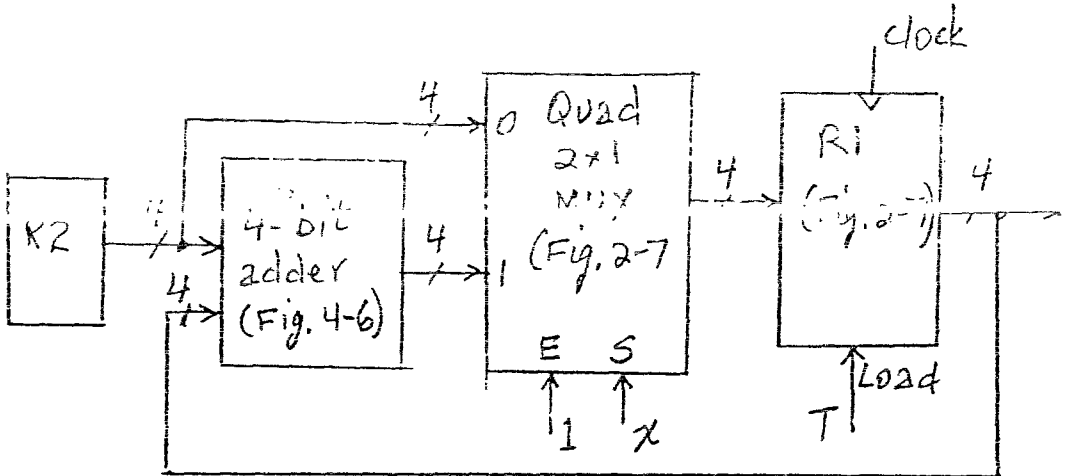 clock
4
0
Quad
2x1
MUX
(Fig. 2-7
R1
4
4
K2
4
4-bit
adder
(Fig. 4-6)
4
1
4
E
S
Load
1
x
T